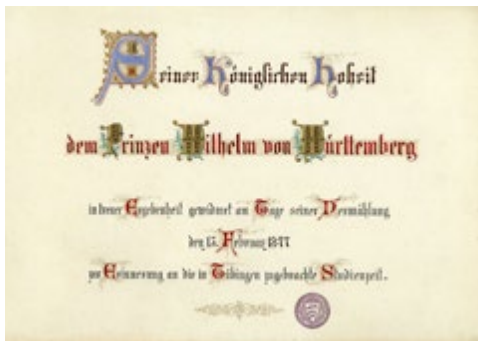 Seiner Königlichen Hoheit
dem Prinzen Wilhelm von Württemberg
in treuer Ergebenheit gewidmet am Tage seiner Vermählung
den 15. Februar 1877
zur Erinnerung an die in Tübingen zugebrachte Studienzeit.